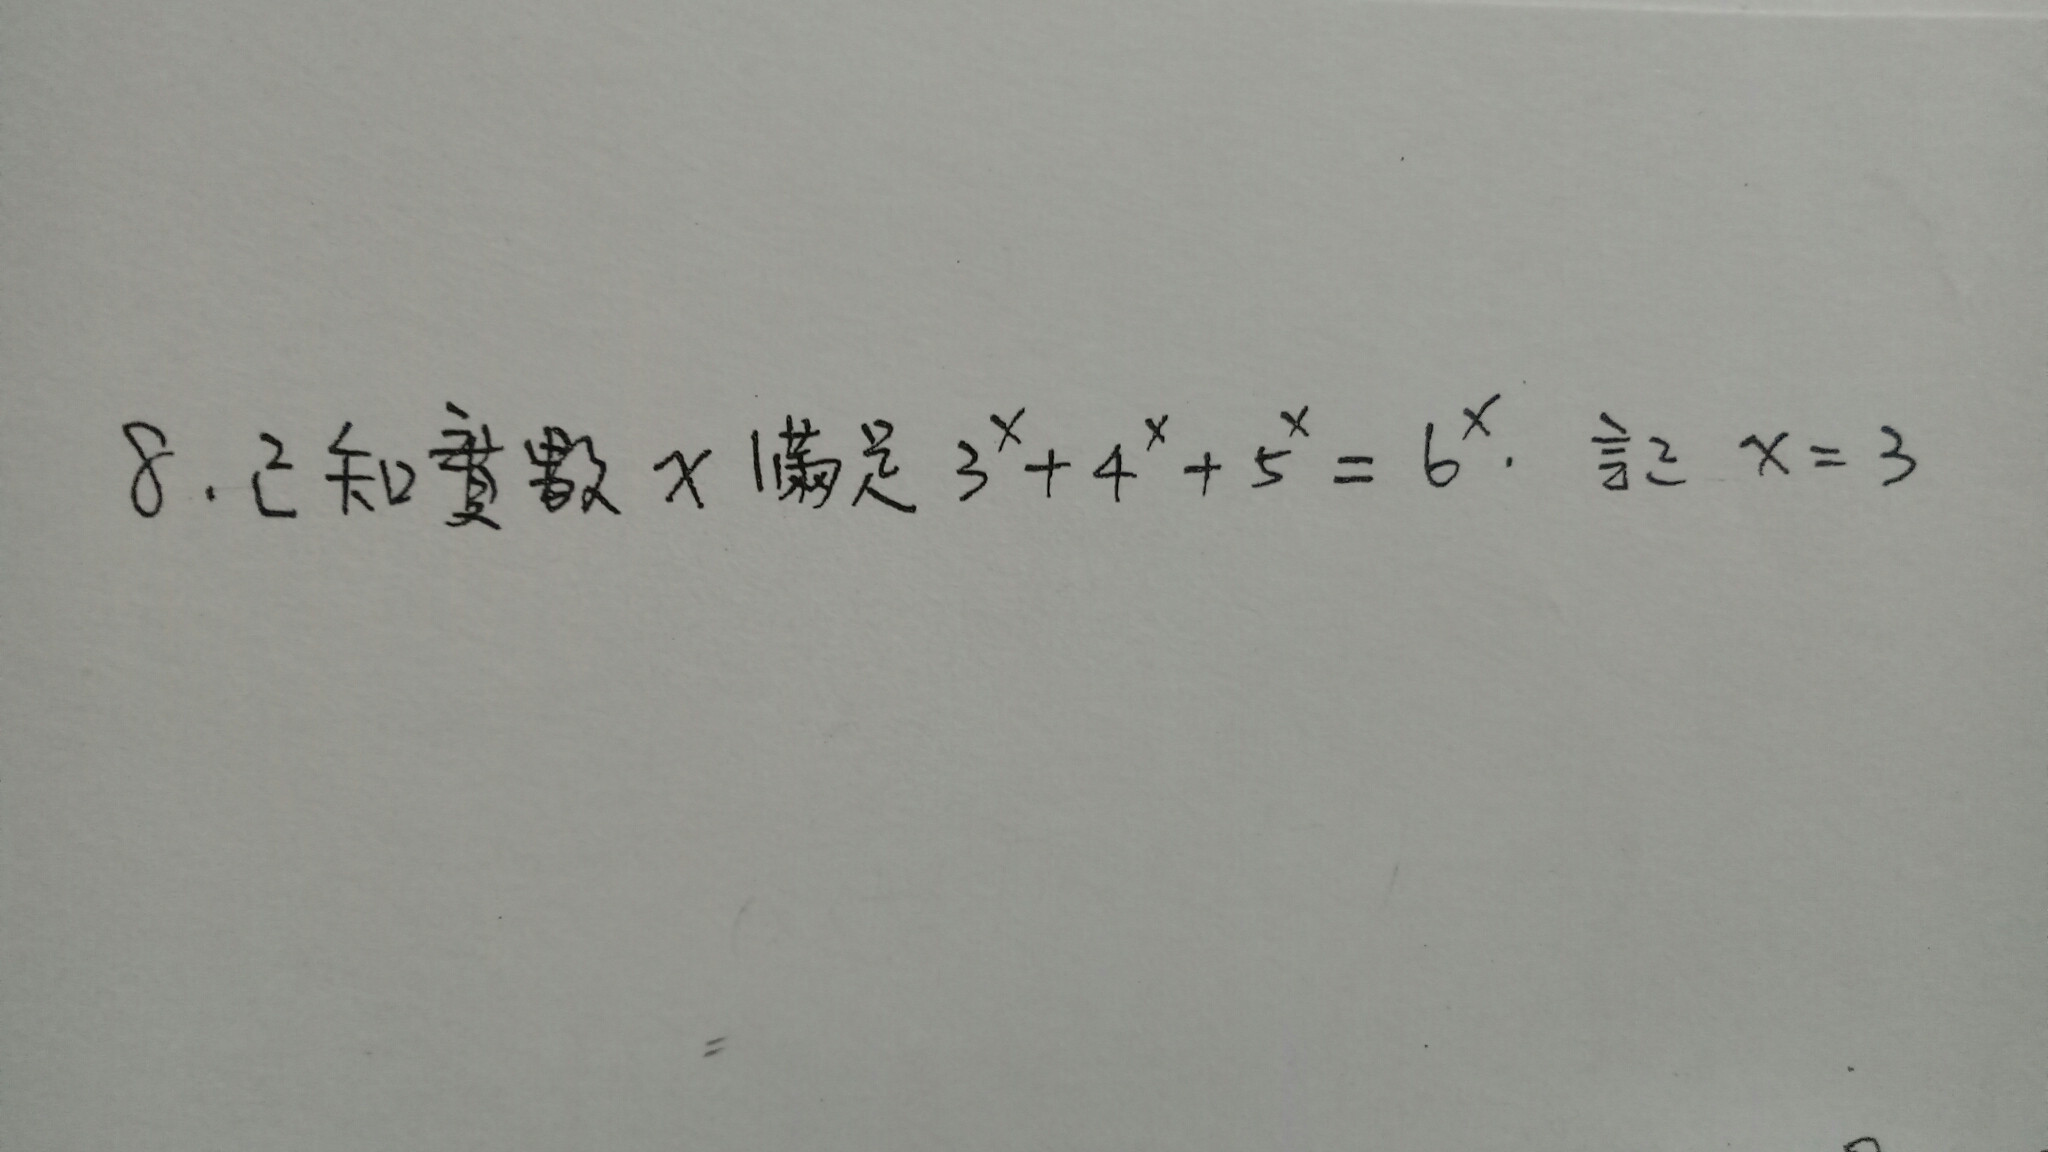 8. 已知實數 x 滿足 3^x + 4^x + 5^x = 6^x. 記 x = 3
=